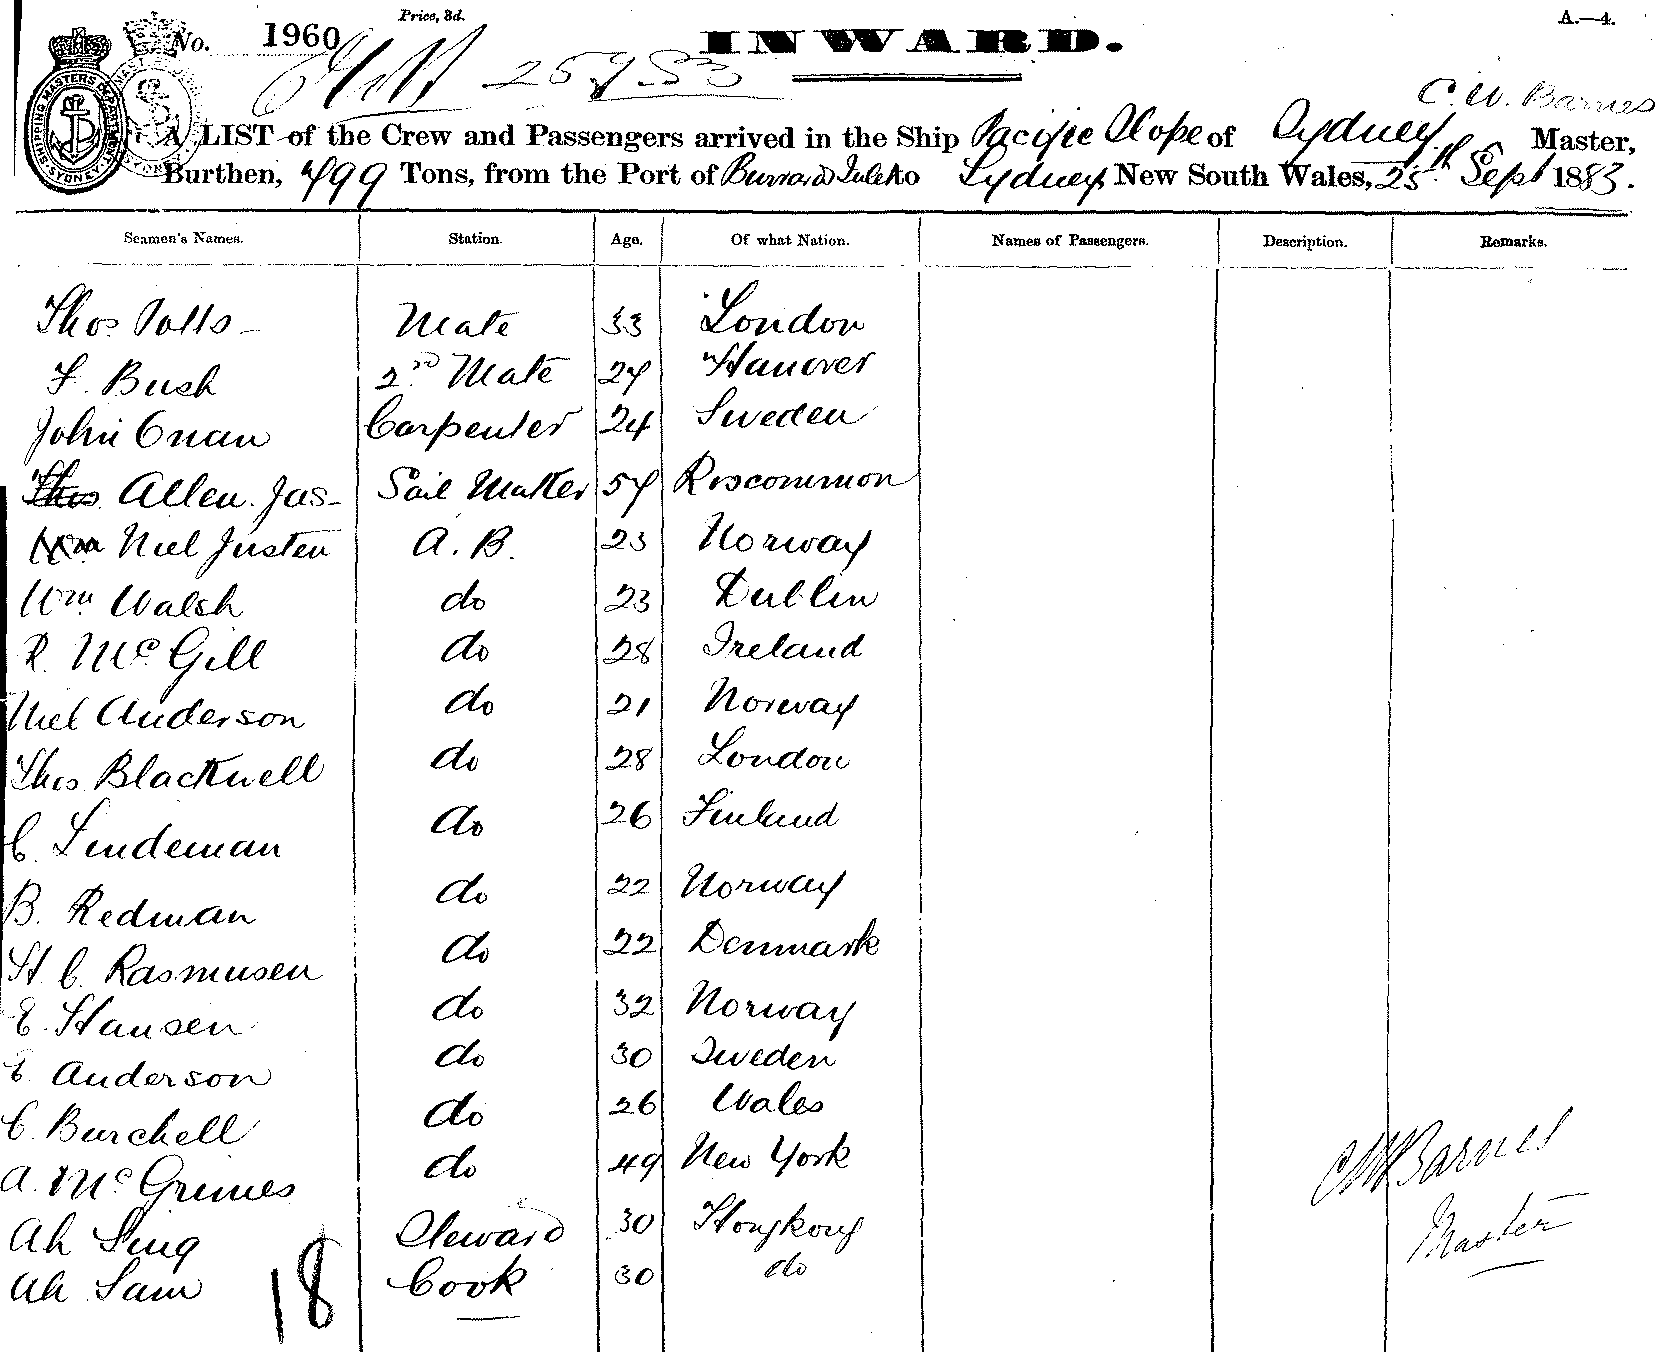 Price, 3d.
A.—4.
No. 1960
INWARD.
C. W. Barnes
A LIST of the Crew and Passengers arrived in the Ship Pacific Slope of Sydney, Master,
Burthen, 499 Tons, from the Port of Burrard Inlet to Sydney New South Wales, 25th Sept 1883.
Seamen's Names. Station. Age. Of what Nation. Names of Passengers. Description. Remarks.
Thos Potts Mate 33 London
F. Bush 2nd Mate 24 Hanover
John Onan Carpenter 24 Sweden
Thos Allen Jas Sail Maker 54 Roscommon
Wm Niel Justen A.B. 23 Norway
Wm Walsh do 23 Dublin
R. McGill do 28 Ireland
Niel Anderson do 21 Norway
Thos Blackwell do 28 London
C. Lindeman do 26 Finland
B. Redman do 22 Norway
H. C. Rasmusen do 22 Denmark
E. Hansen do 32 Norway
E. Anderson do 30 Sweden
C. Burchell do 26 Wales
A. McGrimes do 49 New York
Ah Sing Steward 30 Hongkong
Ah Sam Cook 30 do
18
CW Barnes
Master